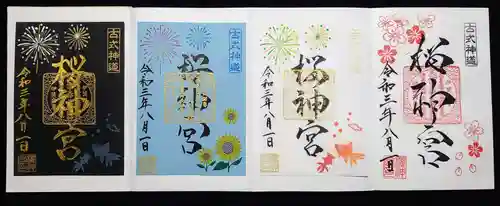 古式神道
桜神宮
令和三年八月一日
古式神道
桜神宮
令和三年八月一日
古式神道
桜神宮
令和三年八月一日
古式神道
桜神宮
令和三年八月一日